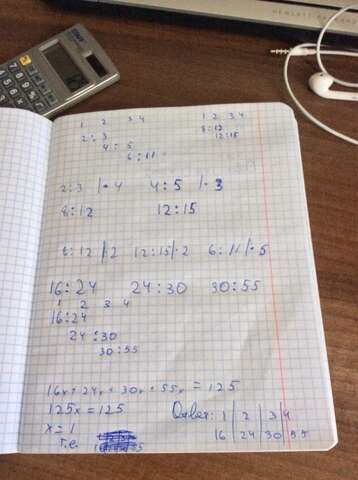 HEWLETT-PACKARD
1 2 3 4
2 : 3
4 : 5
6 : 11
1 2 3 4
8 : 12
12 : 15
2 : 3 | · 4 4 : 5 | · 3
8 : 12 12 : 15
8 : 12 | · 2 12 : 15 | · 2 6 : 11 | · 5
16 : 24 24 : 30 30 : 55
1 2 3 4
16 : 24
24 : 30
30 : 55
16x + 24x + 30x + 55x = 125
125x = 125
x = 1
т.е.
Ответ: 1 | 2 | 3 | 4
16 | 24 | 30 | 55